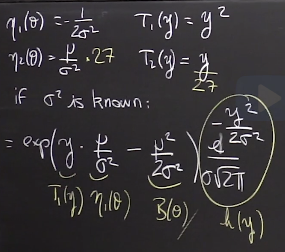 η₁(θ) = -1/2σ² T₁(y) = y²
η₂(θ) = μ/σ² · 27 T₂(y) = y/27
if σ² is known:
= exp(y · μ/σ² - μ²/2σ²) e^(-y²/2σ²)/σ√2π
T₁(y) η₁(θ) B(θ) h(y)